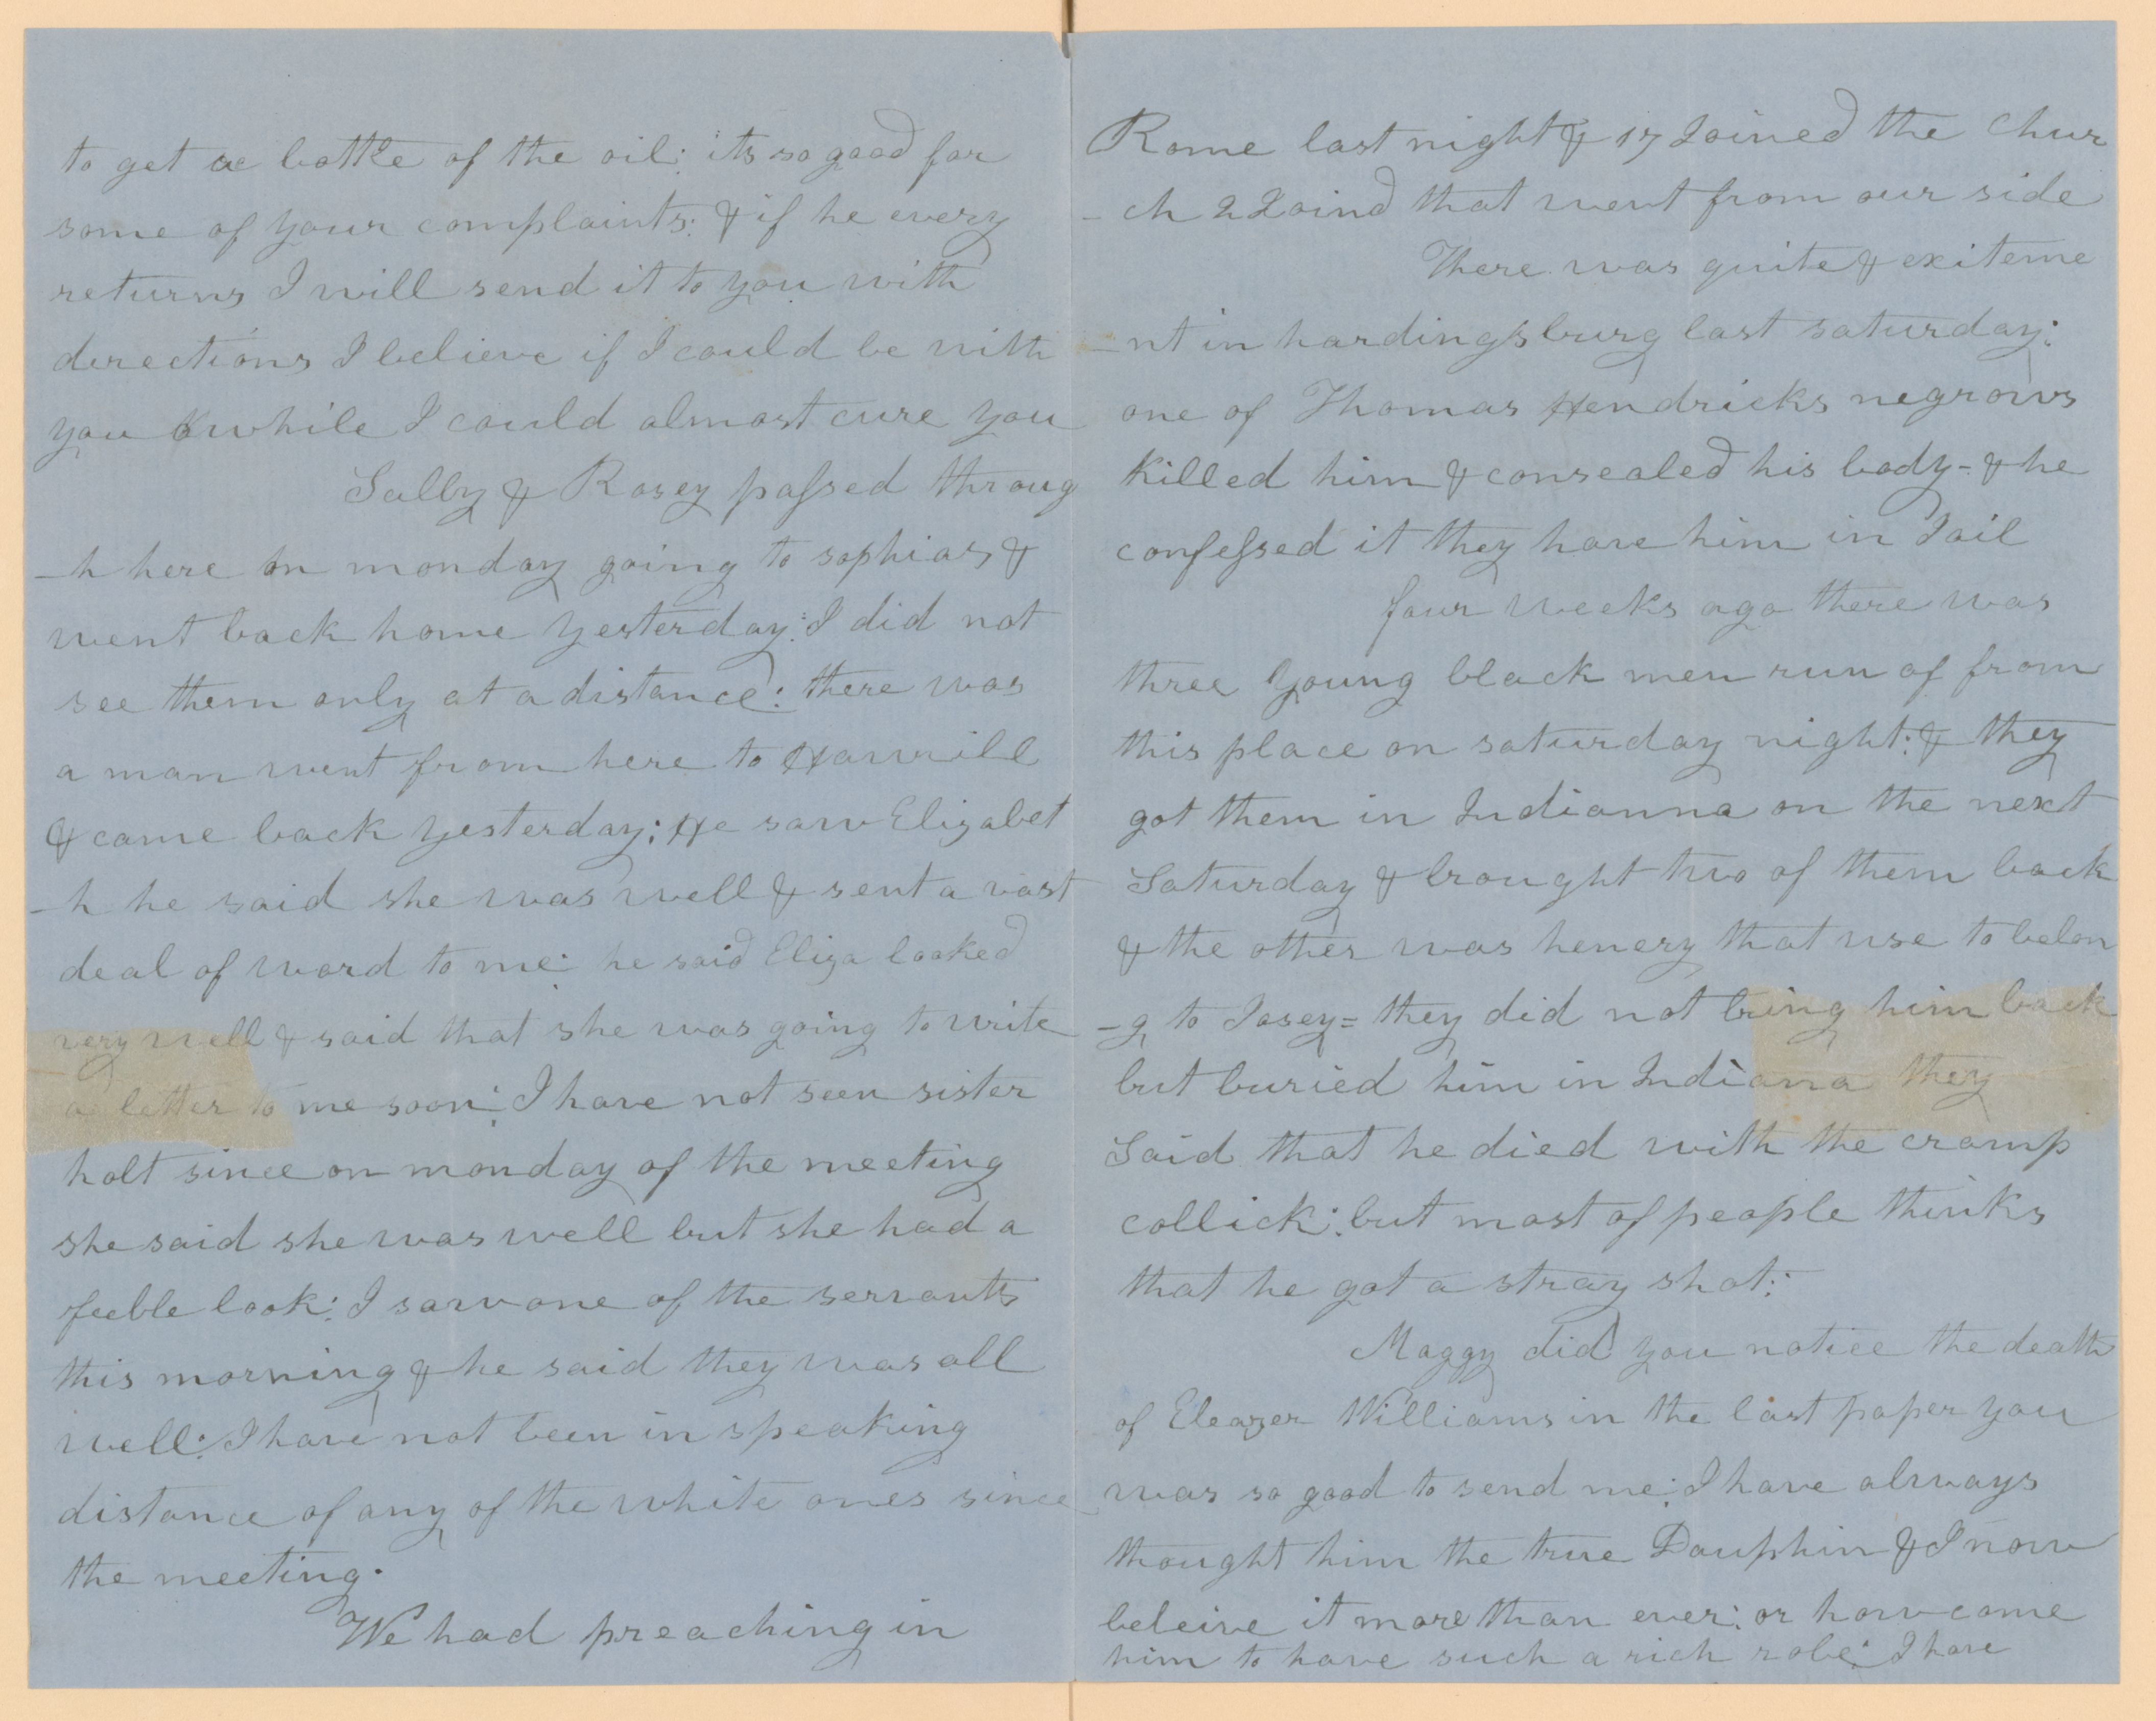 to get a bottle of the oil: its so good for
some of your complaints: & if he every
returns I will send it to you with
directions I believe if I could be with
you awhile I could almost cure you
Sally & Rosey passed throug
-h here on monday going to sophias &
went back home yesterday: I did not
see them only at a distance: there was
a man went from here to Hawvill
& came back yesterday; He saw Elizabet
-h he said she was well & sent a vast
deal of word to me: he said Eliza looked
very well & said that she was going to write
a letter to me soon: I have not seen sister
holt since on monday of the meeting
she said she was well but she had a
feeble look: I saw one of the servants
this morning & he said they was all
well: I have not been in speaking
distance of any of the white ones since
the meeting.
We had preaching in
Rome last night & 17 Joined the Chur
-ch 2 Joind that went from our side
There was quite & exiteme
-nt in hardingsburg last saturday:
one of Thomas Hendricks negrows
Killed him & consealed his body - & he
confessed it they have him in Jail
four weeks ago there was
three young black men run of from
this place on saturday night: & they
got them in Indianna on the next
Saturday & brought two of them back
& the other was henery that use to belon
-g to Josey = they did not bring him back
but buried him in Indiana they
Said that he died with the cramp
collick: but most of people thinks
that he got a stray shot:
Maggy did you notice the death
of Eleazer Williams in the last paper you
was so good to send me: I have always
thought him the true Dauphin & I now
beleive it more than ever: or how come
him to have such a rich robe: I have